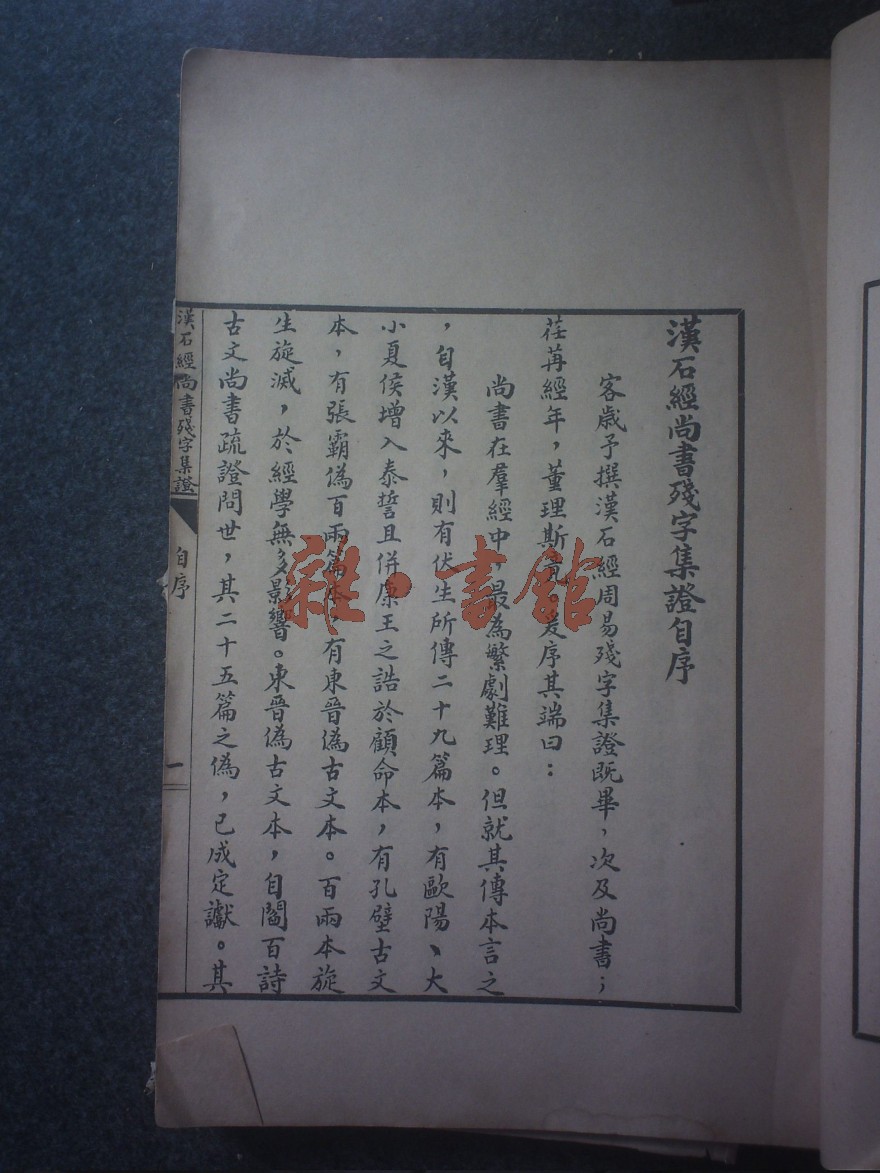 漢石經尚書殘字集證自序
客歲予撰漢石經周易殘字集證既畢,次及尚書;
荏苒經年,董理斯竟,爰序其端曰:
尚書在羣經中,最為繁劇難理。但就其傳本言之
,自漢以來,則有伏生所傳二十九篇本,有歐陽、大
小夏侯增入泰誓且併康王之誥於顧命本,有孔壁古文
本,有張霸偽百兩篇本,有東晉偽古文本。百兩本旋
生旋滅,於經學無多影響。東晉偽古文本,自閻百詩
古文尚書疏證問世,其二十五篇之偽,已成定讞。其
漢石經尚書殘字集證
自序
一
雜·書館